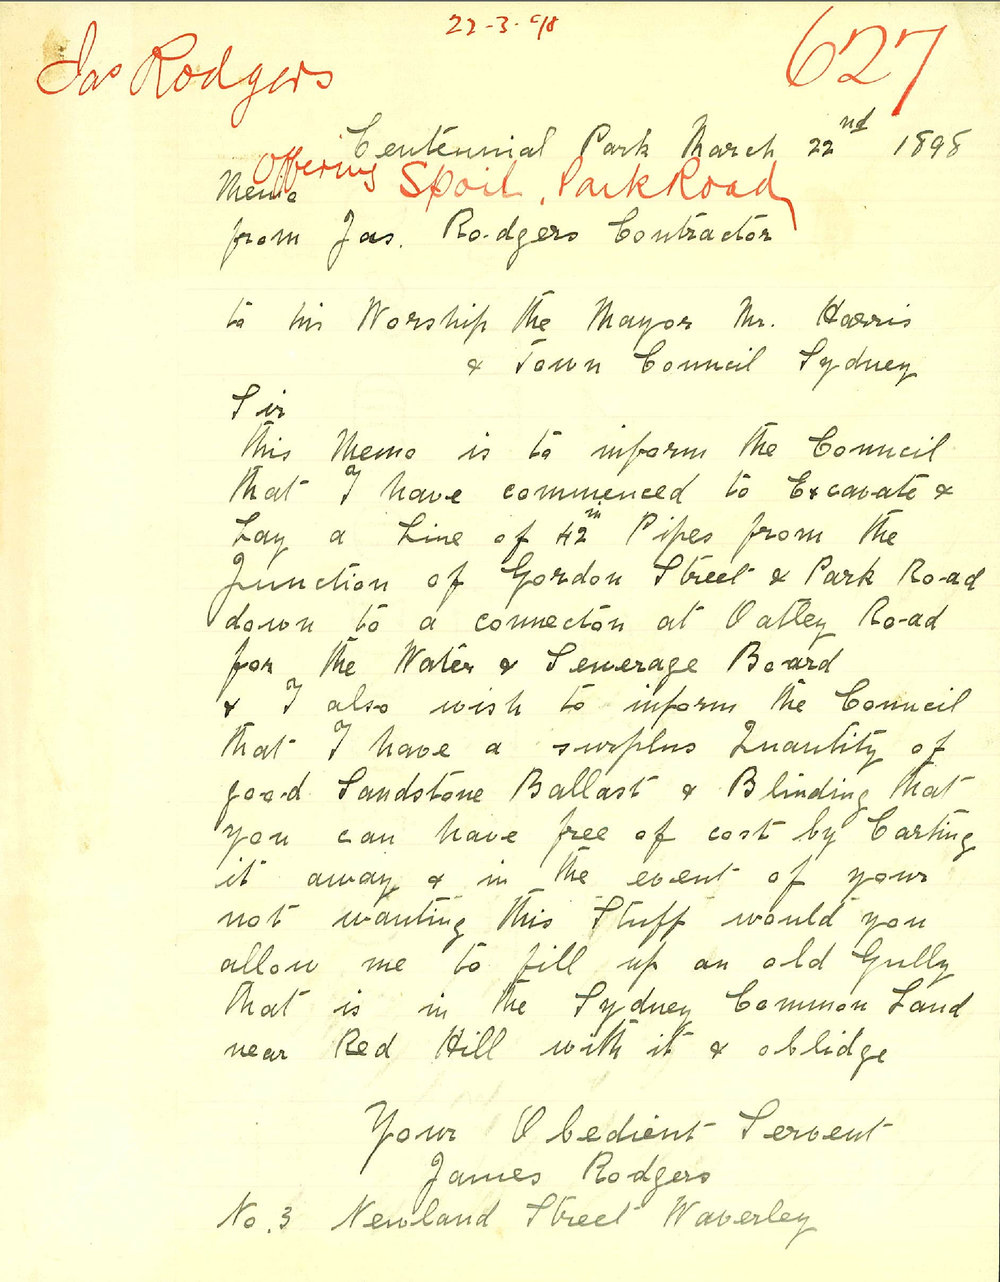 22-3-98
Jas Rodgers
627
Centennial Park March 22nd 1898
Offering Spoil, Park Road
Memo
from Jas. Rodgers Contractor
to his Worship the Mayor Mr. Harris
& Town Council Sydney
Sir
this Memo is to inform the Council
that I have commenced to Excavate &
Lay a Line of 42in Pipes from the
Junction of Gordon Street & Park Road
down to a connecton at Oatley Road
for the Water & Sewerage Board
& I also wish to inform the Council
that I have a surplus Quantity of
good Sandstone Ballast & Blinding that
you can have free of cost by Carting
it away & in the event of your
not wanting this Stuff would you
allow me to fill up an old Gully
that is in the Sydney Common Land
near Red Hill with it & oblidge
Your Obedient Servent
James Rodgers
No. 3 Newland Street Waverley